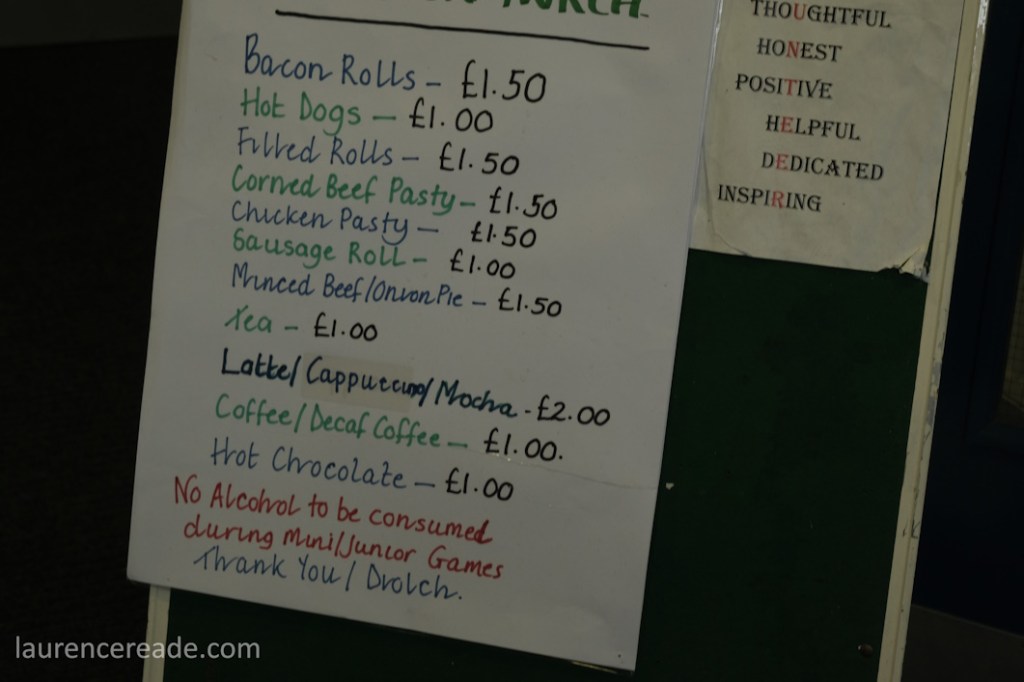 Bacon Rolls - £1.50
Hot Dogs - £1.00
Filled Rolls - £1.50
Corned Beef Pasty - £1.50
Chicken Pasty - £1.50
Sausage Roll - £1.00
Minced Beef/Onion Pie - £1.50
Tea - £1.00
Latte/Cappuccino/Mocha - £2.00
Coffee/Decaf Coffee - £1.00.
Hot Chocolate - £1.00
No Alcohol to be consumed
during Mini/Junior Games
Thank You/Diolch.
THOUGHTFUL
HONEST
POSITIVE
HELPFUL
DEDICATED
INSPIRING
laurencereade.com